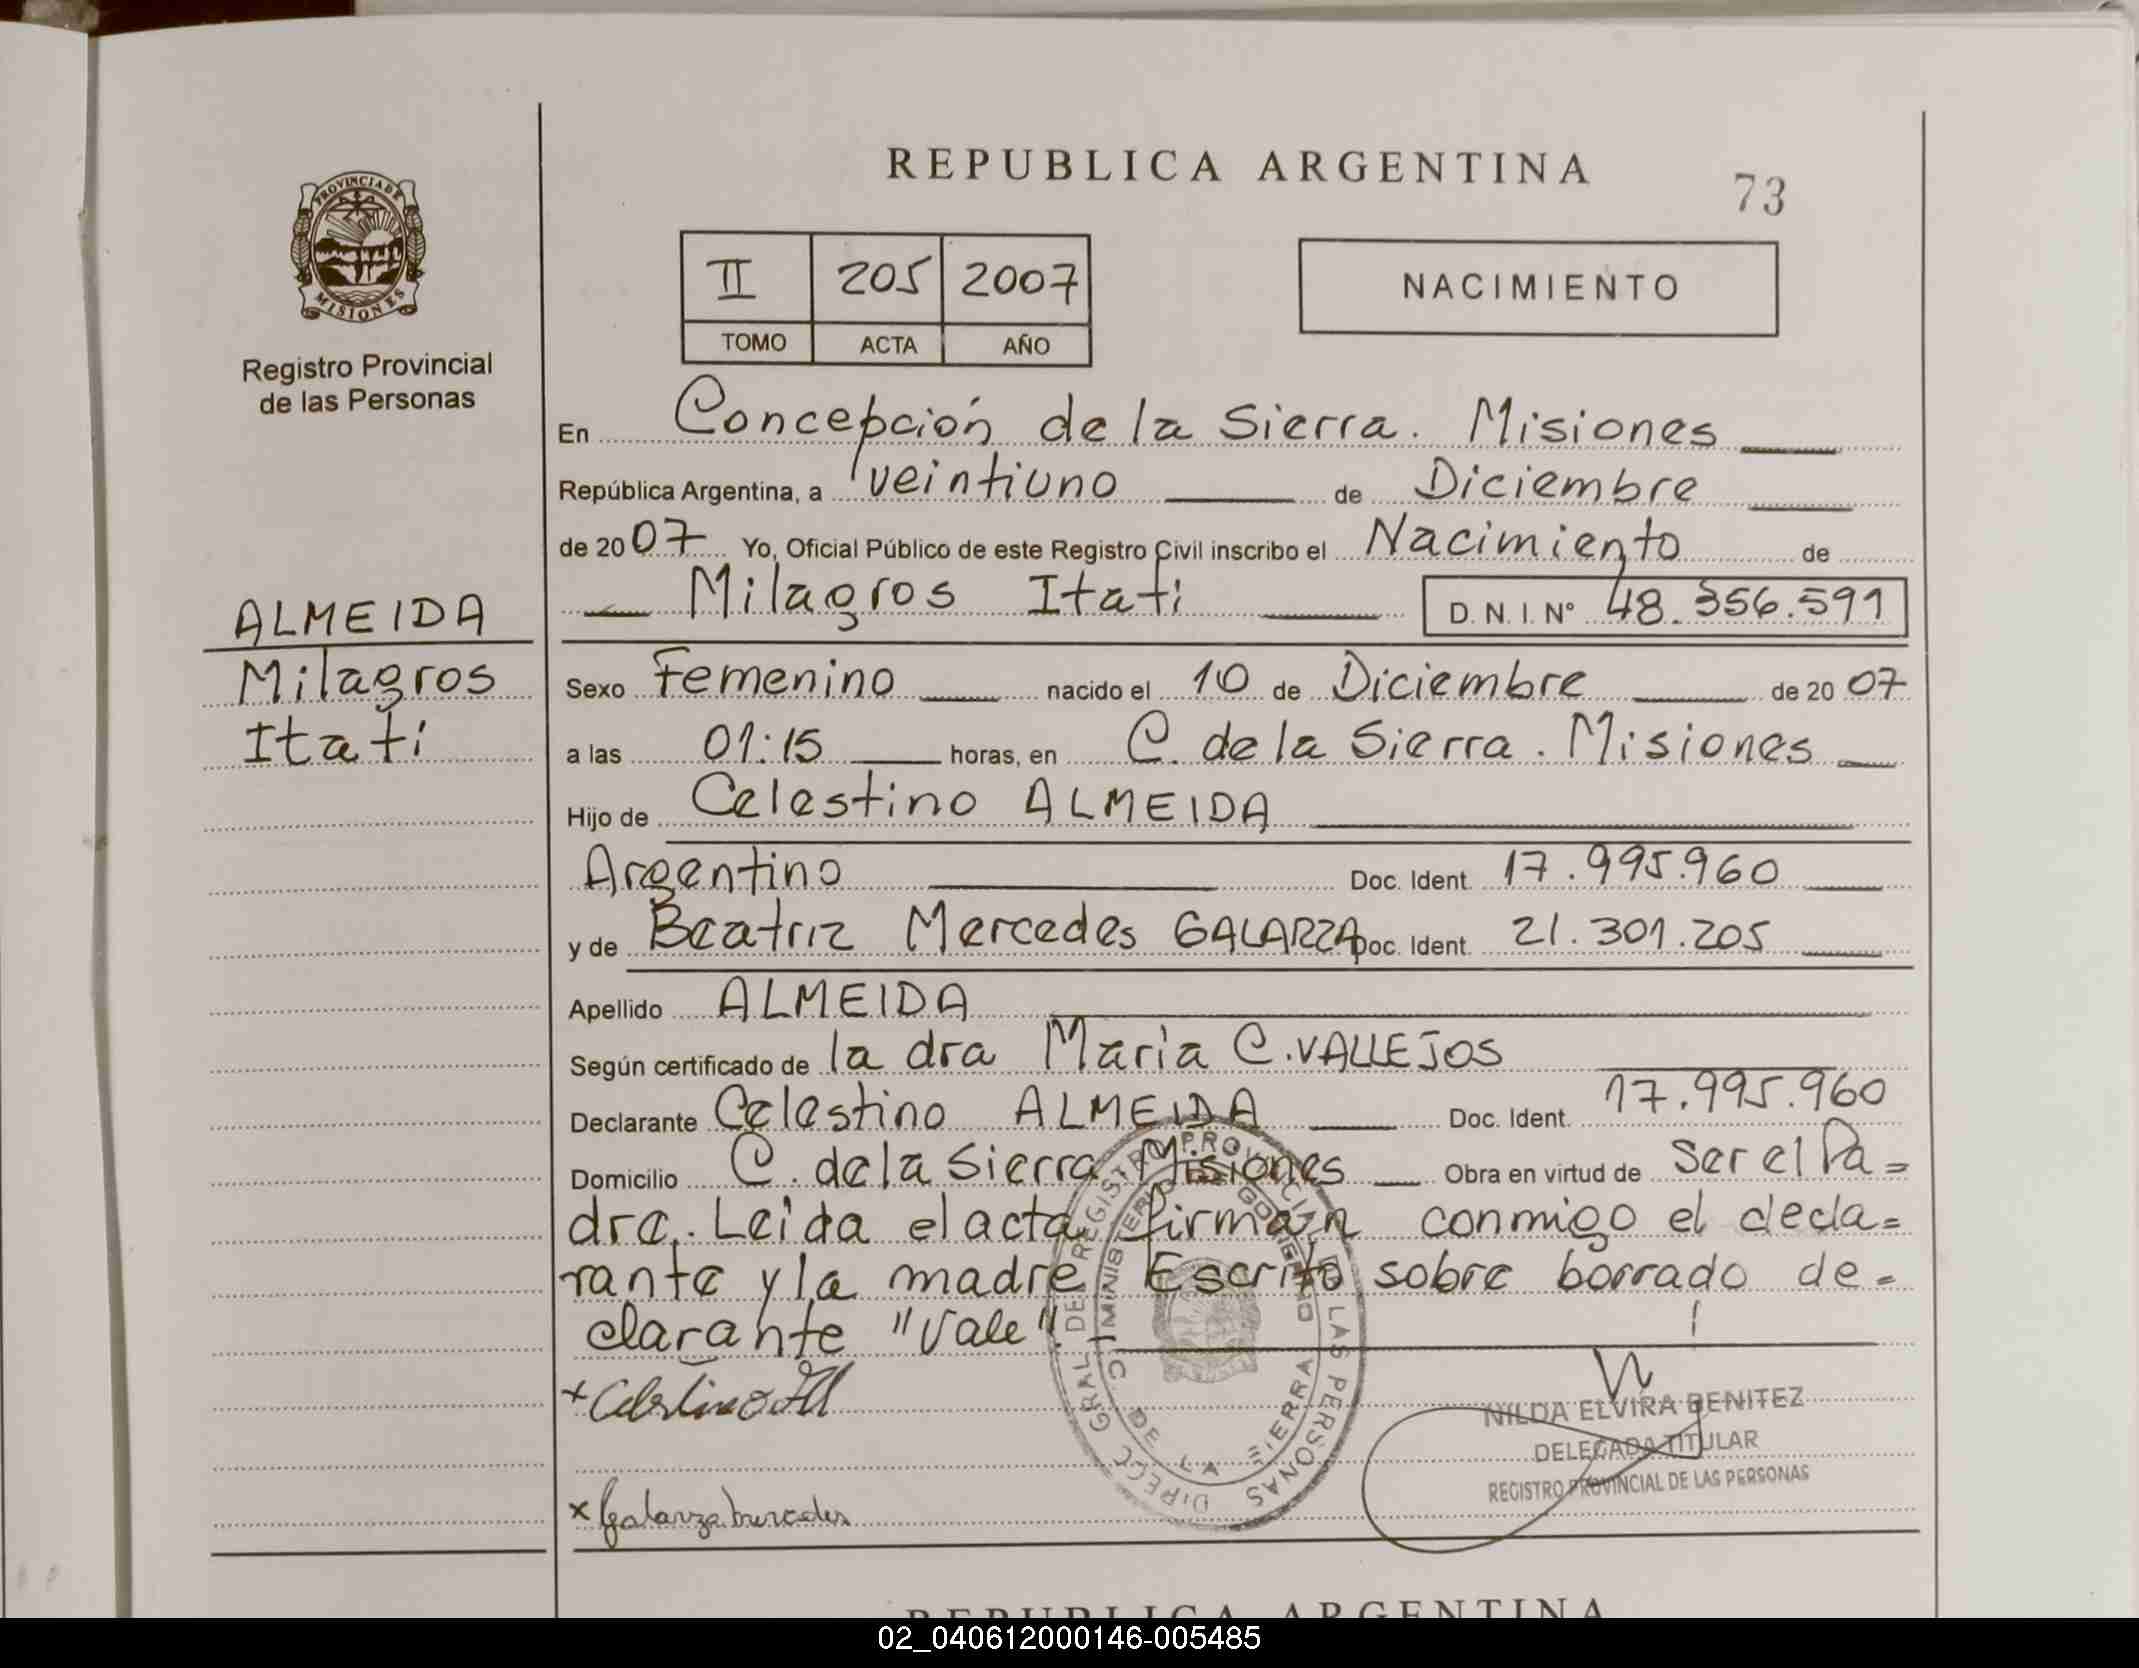 REPUBLICA ARGENTINA
73
PROVINCIA DE
MISIONES
Registro Provincial
de las Personas
II 205 2007
TOMO ACTA AÑO
NACIMIENTO
En Concepción de la Sierra. Misiones
República Argentina, a veintiuno de Diciembre
de 2007 Yo, Oficial Público de este Registro Civil inscribo el Nacimiento de
Milagros Itatí D.N.I. Nº 48.356.591
ALMEIDA
Milagros
Itatí
Sexo Femenino nacido el 10 de Diciembre de 2007
a las 01:15 horas, en C. de la Sierra. Misiones
Hijo de Celestino ALMEIDA
Argentino Doc. Ident. 17.995.960
y de Beatriz Mercedes GALARZA Doc. Ident. 21.301.205
Apellido ALMEIDA
Según certificado de la dra María C. VALLEJOS
Declarante Celestino ALMEIDA Doc. Ident. 17.995.960
Domicilio C. de la Sierra Misiones Obra en virtud de ser el Pa=
dre. Leida el acta firman conmigo el decla=
rante y la madre Escrito sobre borrado de=
clarante "Vale".
DIRECC GRAL DE REGISTRO PROVINCIAL DE LAS PERSONAS
MINISTERIO DE GOBIERNO
DE LA SIERRA
x Celestino Al
NILDA ELVIRA BENITEZ
DELEGADA TITULAR
REGISTRO PROVINCIAL DE LAS PERSONAS
x Galarza Mercedes
REPUBLICA ARGENTINA
02_040612000146-005485